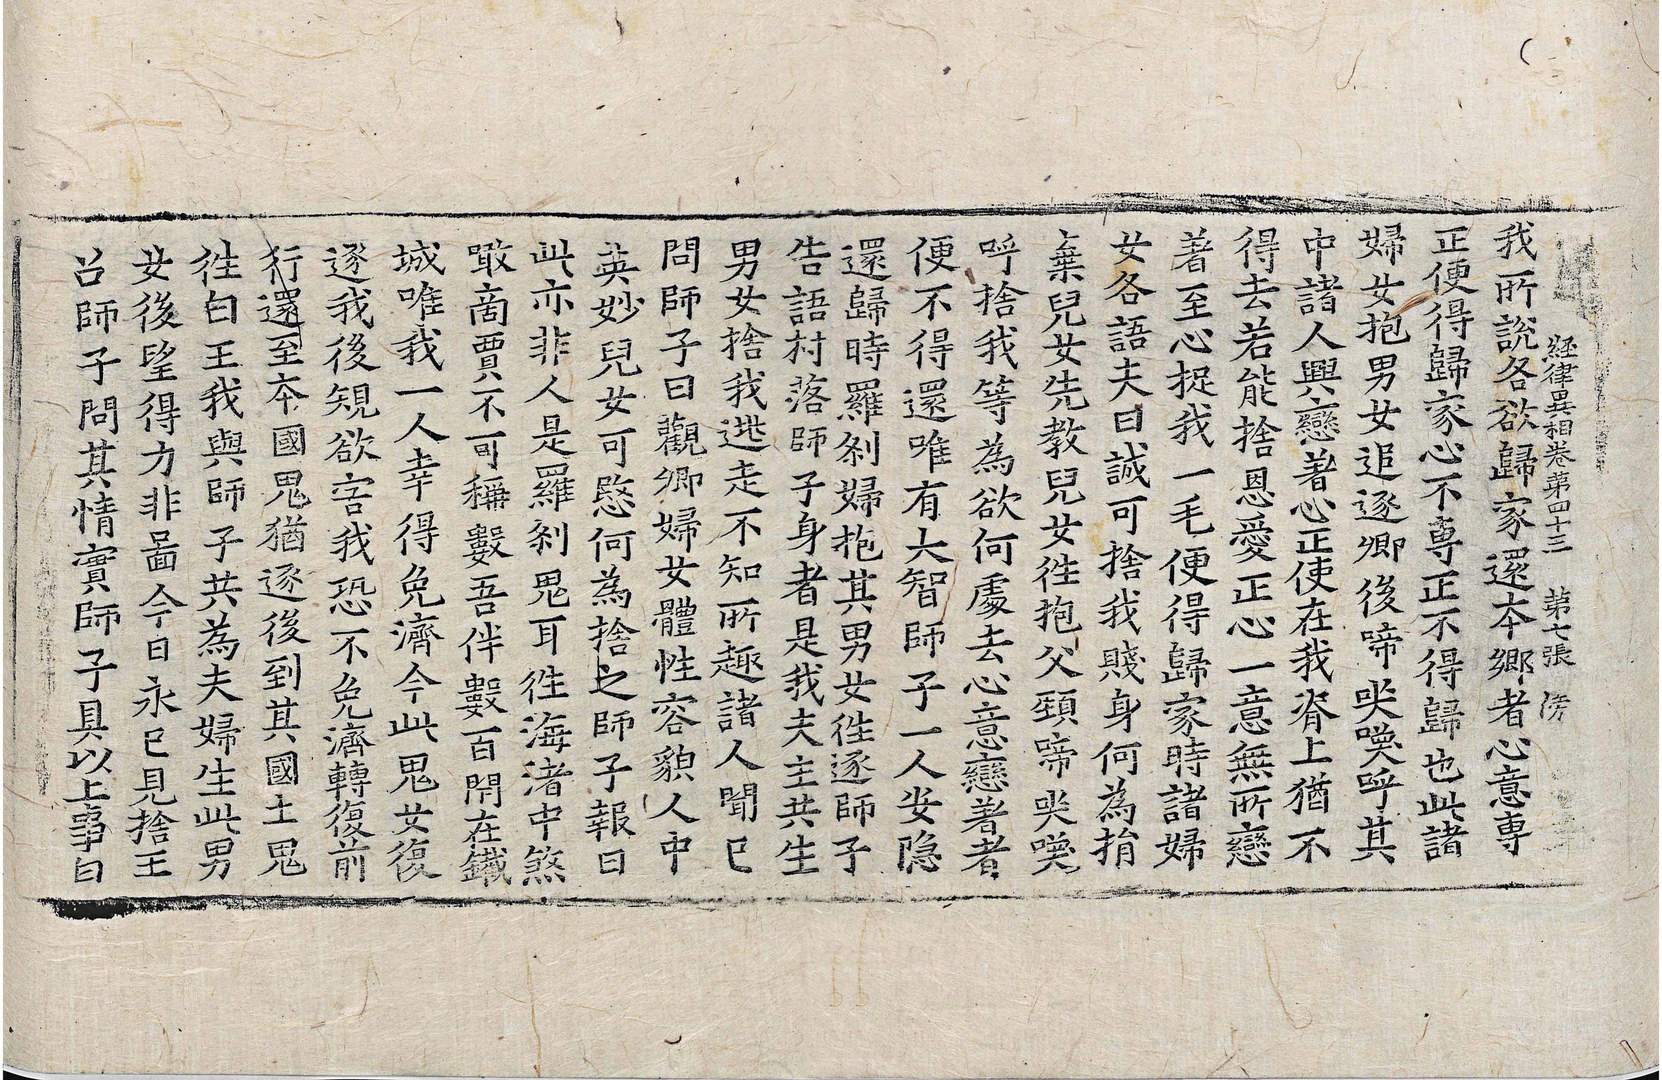 經律異相卷第四十三 第七張 傍
我所說各欲歸家還本鄉者心意專
正便得歸家心不專正不得歸也此諸
婦女抱男女追逐卿後啼哭喚呼其
中諸人興戀著心正使在我脊上猶不
得去若能捨恩愛正心一意無所戀
著至心捉我一毛便得歸家時諸婦
女各語夫曰誠可捨我賤身何為捐
棄兒女先教兒女往抱父頸啼哭喚
呼捨我等為欲何處去心意戀著者
便不得還唯有大智師子一人安隱
還歸時羅剎婦抱其男女往逐師子
告語村落師子身者是我夫主共生
男女捨我逃走不知所趣諸人聞已
問師子曰觀卿婦女體性容貌人中
英妙兒女可愍何為捨之師子報曰
此亦非人是羅剎鬼耳往海渚中煞
噉商賈不可稱數吾伴數百閇在鐵
城唯我一人幸得免濟今此鬼女復
逐我後規欲害我恐不免濟轉復前
行還至本國鬼猶逐後到其國土鬼
往白王我與師子共為夫婦生此男
女後望得力非啚今日永已見捨王
召師子問其情實師子具以上事白